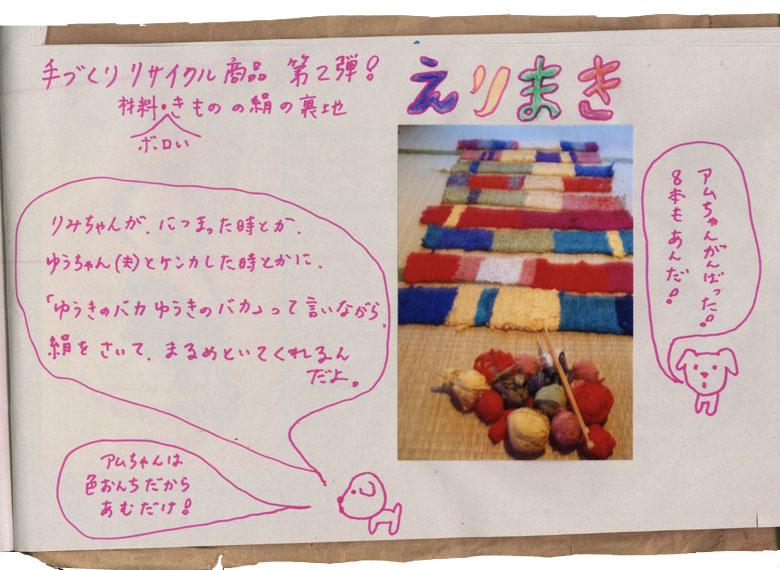 手づくりリサイクル商品 第2弾!
えりまき
材料・きものの絹の裏地
ボロい
りみちゃんが、につまった時とか、
ゆうちゃん(夫)とケンカした時とかに、
「ゆうきのバカ ゆうきのバカ」って言いながら、
絹をさいて、まるめといてくれるん
だよ。
アムちゃんがんばった!
8本もあんだ!
アムちゃんは
色おんちだから
あむだけ!